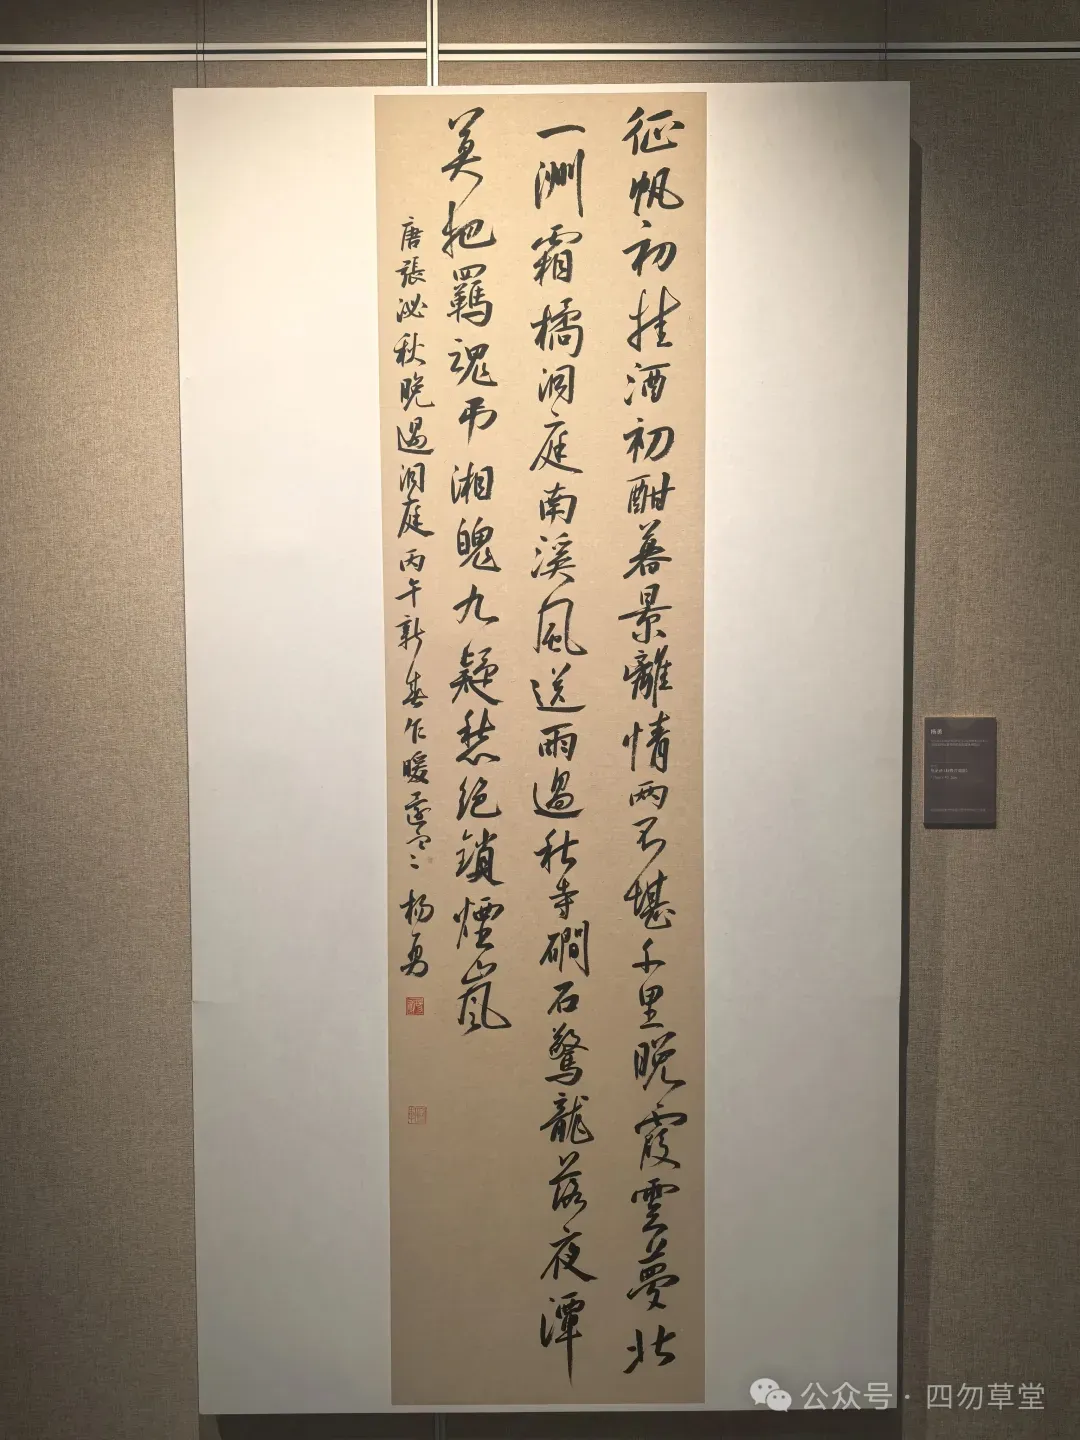 征帆初挂酒初酣暮景離情两不堪千里晚霞雲夢北
一洲霜橘洞庭南溪風送雨過秋寺磵石驚龍落夜潭
莫把羈魂弔湘魄九疑愁绝鎖煙嵐
唐張泌秋晚過洞庭丙午新春乍暖 杨勇
杨勇
公众号·四勿草堂